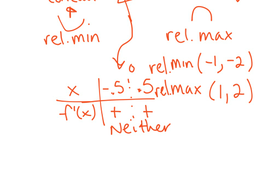 rel.min
rel.max
0
rel.min (-1, -2)
x | -.5 | .5
rel.max (1, 2)
f'(x) | + | +
Neither